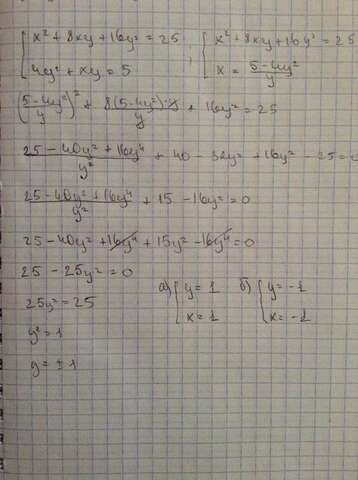 { x² + 8xy + 16y² = 25 ; { x² + 8xy + 16y² = 25
{ 4y² + xy = 5 { x = (5 - 4y²)/y
((5 - 4y²)/y)² + 8(5 - 4y²)·y/y + 16y² = 25
(25 - 40y² + 16y⁴)/y² + 40 - 32y² + 16y² - 25 = 0
(25 - 40y² + 16y⁴)/y² + 15 - 16y² = 0
25 - 40y² + 16y⁴ + 15y² - 16y⁴ = 0
25 - 25y² = 0
25y² = 25
y² = 1
y = ± 1
а) { y = 1 б) { y = -1
{ x = 1 { x = -1